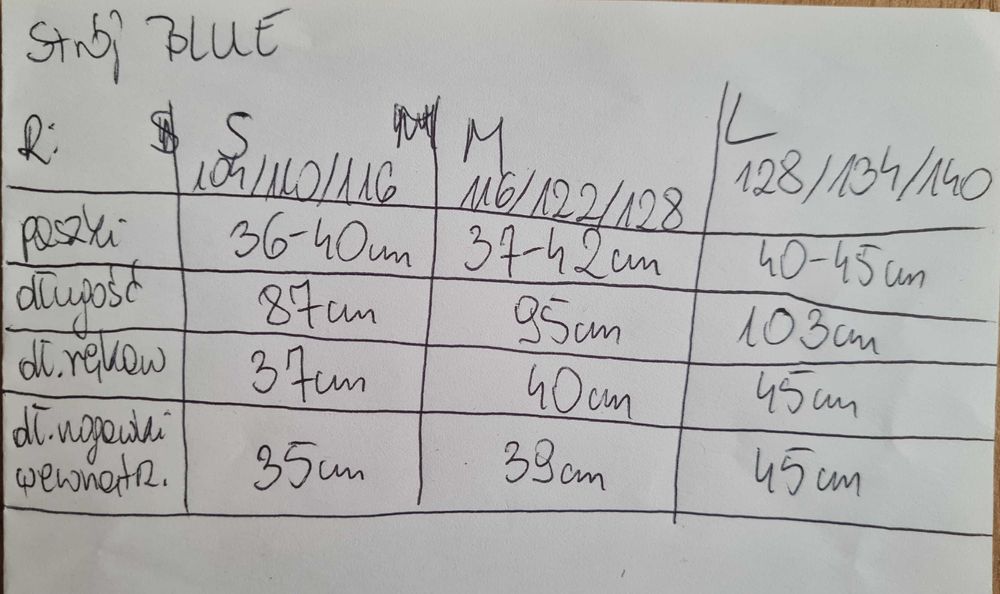 Strój BLUE
R: S M L
104/110/116 116/122/128 128/134/140
paszki 36-40cm 37-42cm 40-45cm
długość 87cm 95cm 103cm
dł. rękaw 37cm 40cm 45cm
dł. nogawki
wewnątrz. 35cm 39cm 45cm